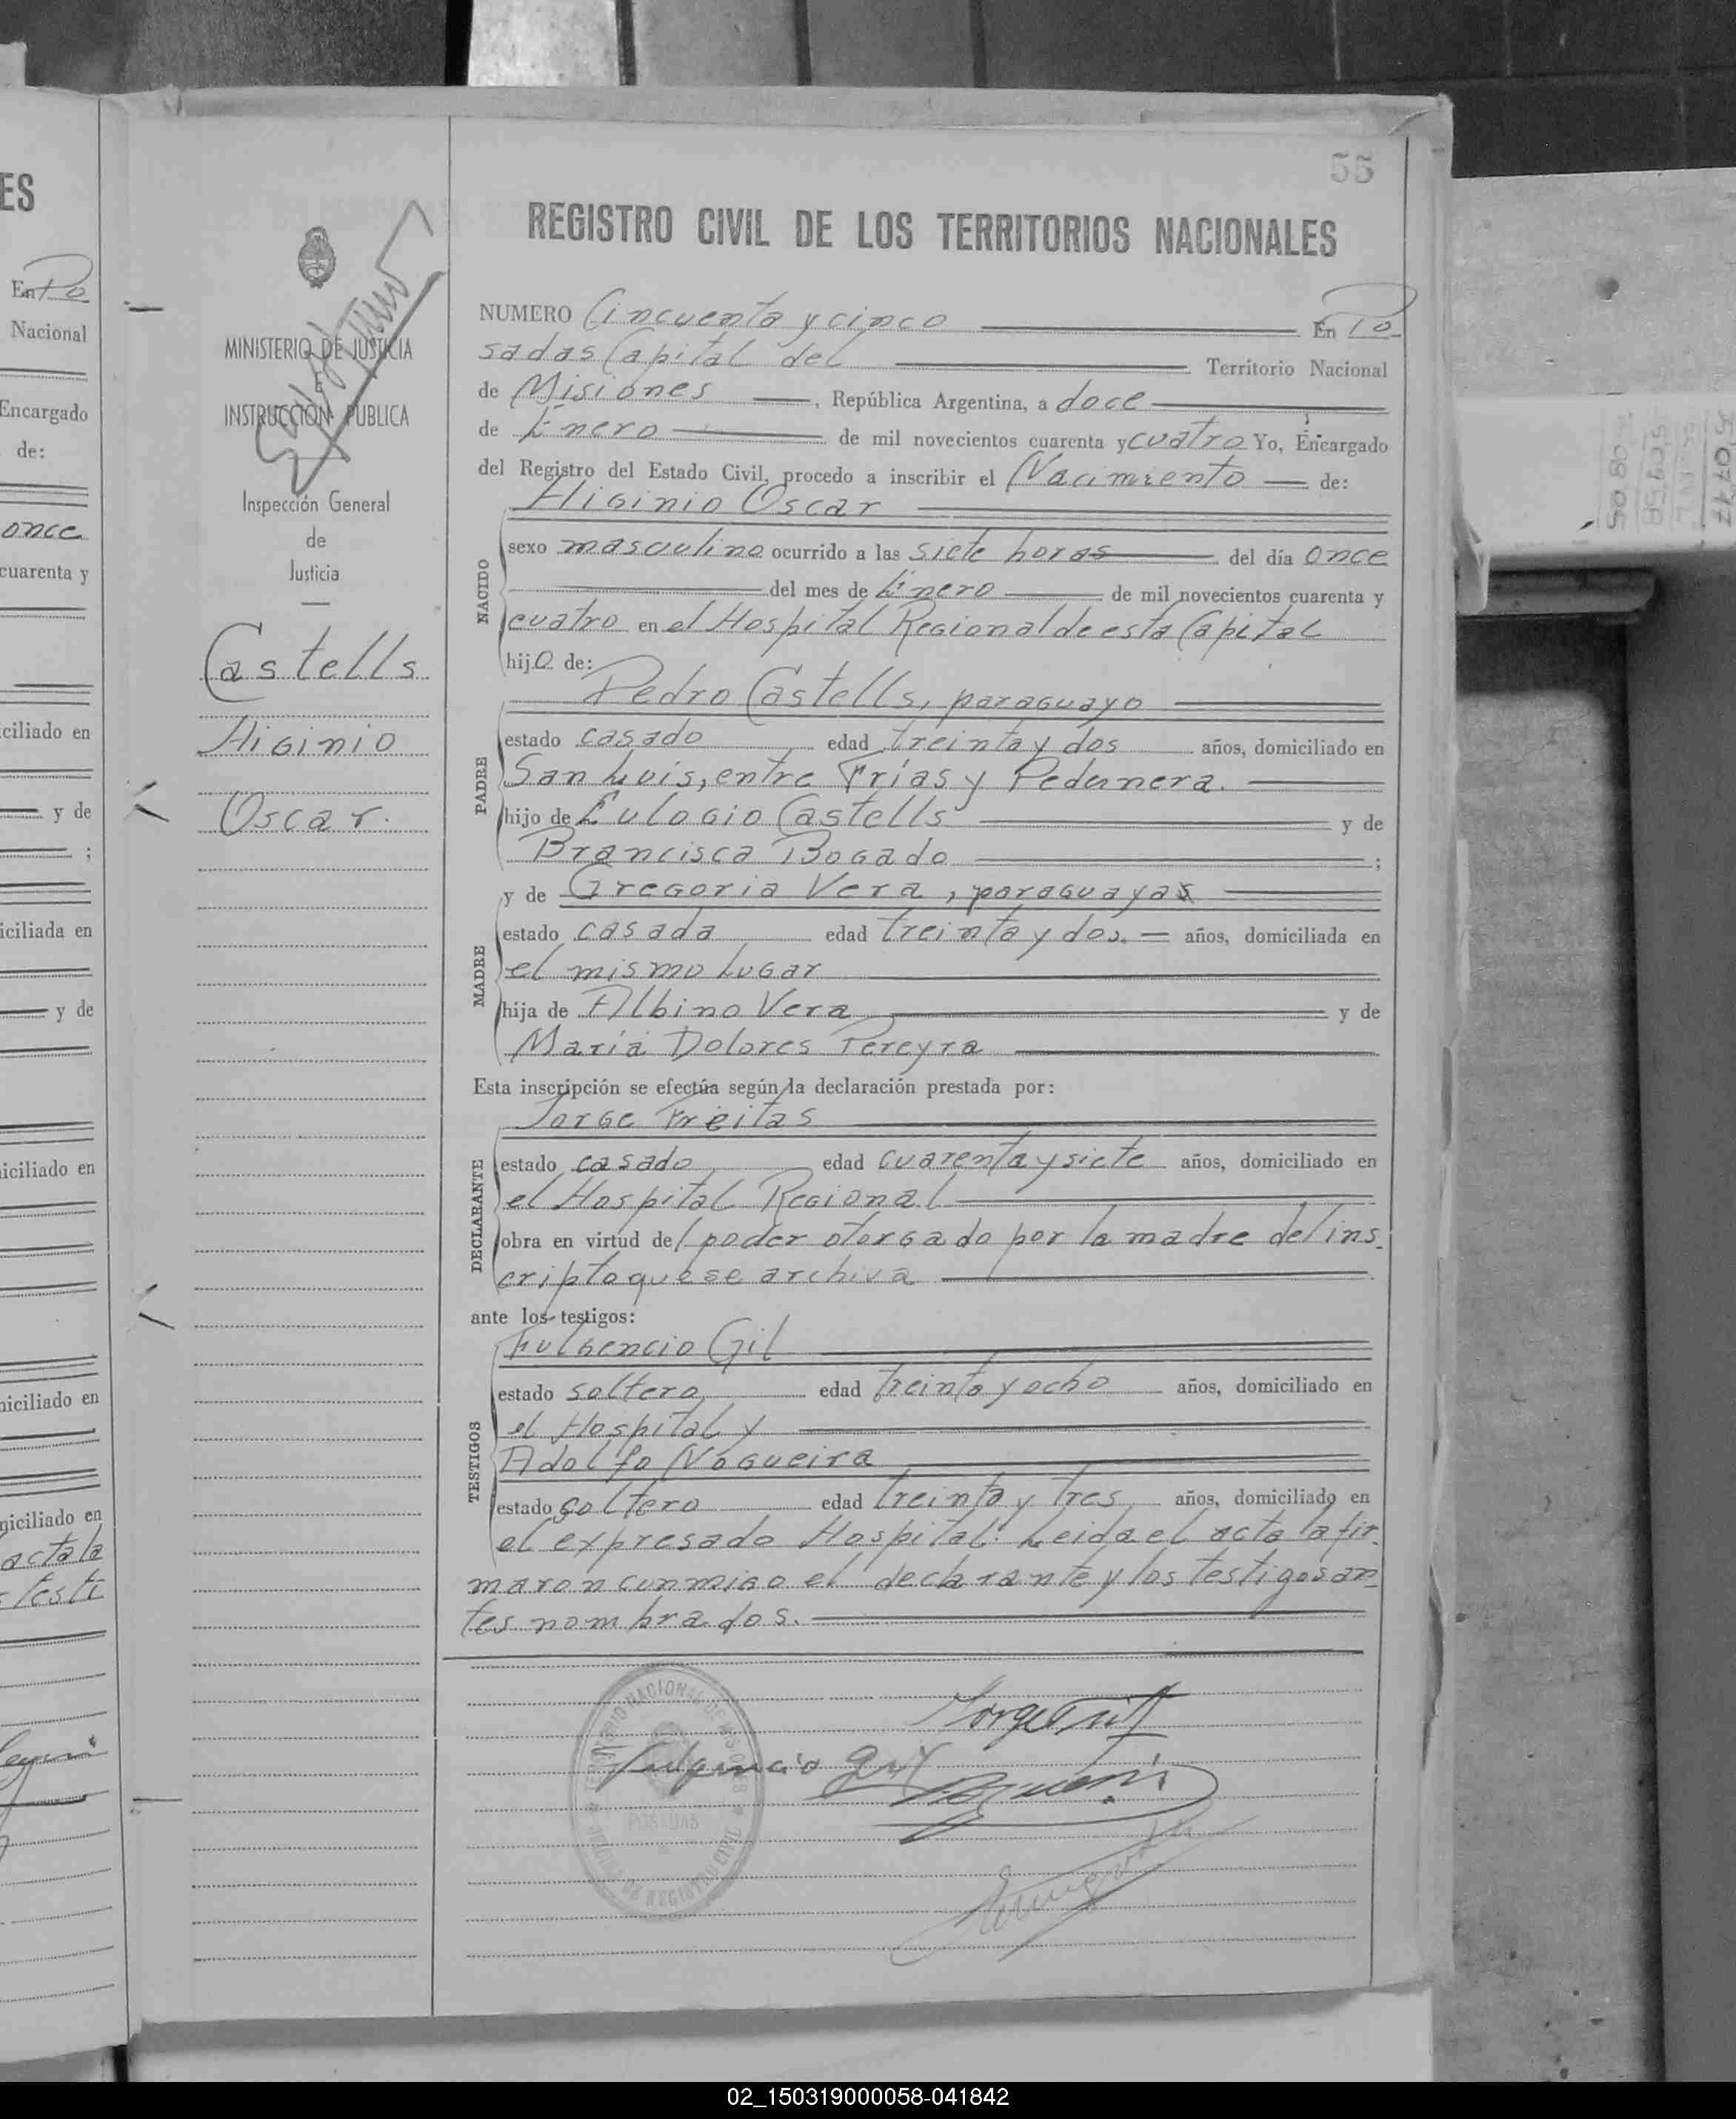 ES
En Po
Nacional
Encargado
de:
once
cuarenta y
ciliado en
y de
;
iciliada en
y de
iciliado en
niciliado en
niciliado en
acta la
testi
MINISTERIO DE JUSTICIA
E
INSTRUCCIÓN PUBLICA
Inspección General
de
Justicia
Castells
Higinio
Oscar.
55
REGISTRO CIVIL DE LOS TERRITORIOS NACIONALES
NUMERO Cincuenta y cinco En Po
sadas Capital del Territorio Nacional
de Misiones, República Argentina, a doce
de Enero de mil novecientos cuarenta y cuatro Yo, Encargado
del Registro del Estado Civil, procedo a inscribir el Nacimiento de:
Higinio Oscar
NACIDO
sexo masculino ocurrido a las siete horas del día once
del mes de Enero de mil novecientos cuarenta y
cuatro en el Hospital Regional de esta Capital
hijo de:
Pedro Castells, paraguayo
PADRE
estado casado edad treinta y dos años, domiciliado en
San Luis, entre Frías y Pedernera.
hijo de Eulogio Castells y de
Francisca Bogado ;
y de Gregoria Vera, paraguaya
MADRE
estado casada edad treinta y dos. años, domiciliada en
el mismo lugar
hija de Albino Vera y de
María Dolores Pereyra
Esta inscripción se efectúa según la declaración prestada por:
Jorge Freitas
DECLARANTE
estado casado edad cuarenta y siete años, domiciliado en
el Hospital Regional
obra en virtud del poder otorgado por la madre del ins
cripto que se archiva
ante los testigos:
Fulgencio Gil
TESTIGOS
estado soltero edad treinta y ocho años, domiciliado en
el Hospital y
Adolfo Nogueira
estado soltero edad treinta y tres años, domiciliado en
el expresado Hospital. Leida el acta la fir
maron conmigo el declarante y los testigos an
tes nombrados.
TERRITORIO NACIONAL DE MISIONES
POSADAS
REGISTRO CIVIL
Fulgencio Gil
02_150319000058-041842